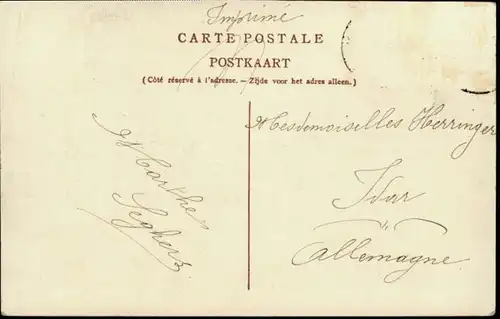 Imprimé
CARTE POSTALE
POSTKAART
(Côté réservé à l'adresse. — Zijde voor het adres alleen.)
Mesdemoiselles Herringer
Idar
Allemagne
Marthe
Seghers